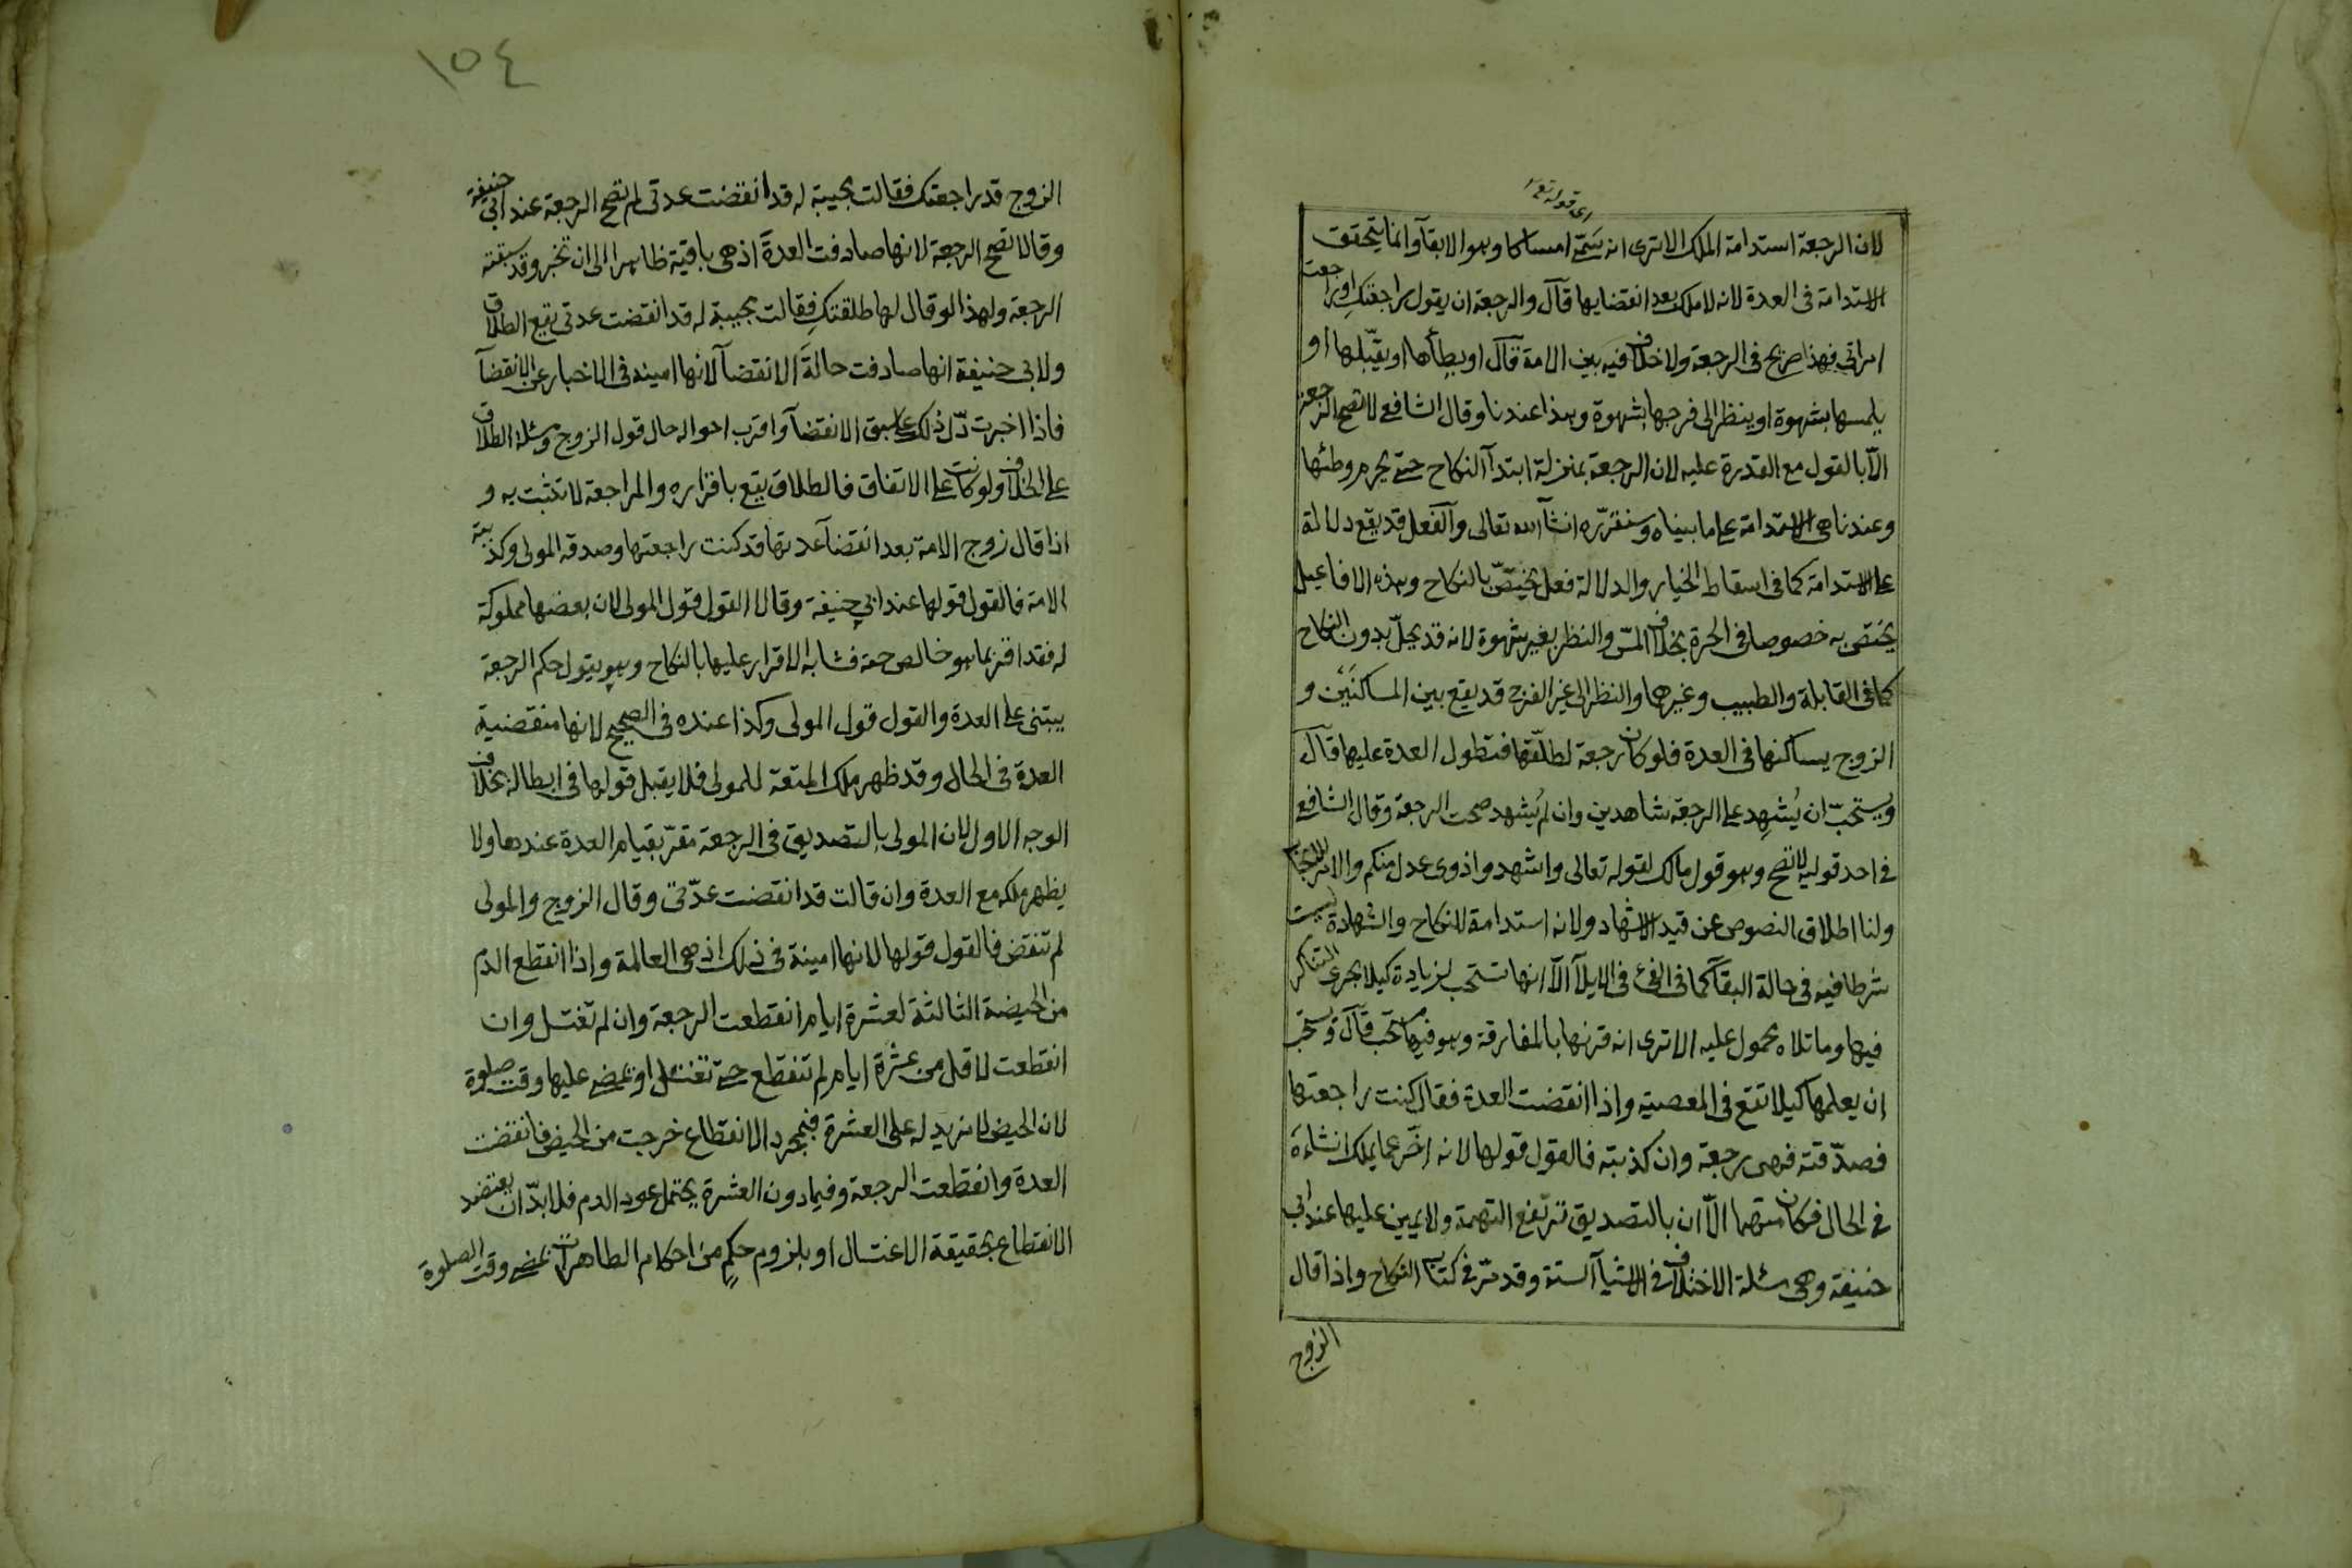 اى قوله تعا
لان الرجعة استدامة الملك الاترى انه سَمّى امساكا وهو الابقآ وانما يتحقق
الاستدامة فى العدة لانه لا ملك بعد انقضايها قآل والرجعة ان يقول راجعتكِ او راجعت
امراتى فهذا صريح فى الرجعة ولا خلاف فيه بين الامة قآل او يطأها او يقبّلها او
يلمسها بشهوة او ينظر الى فرجها بشهوة وهذا عندنا وقال الشافعى لا تصح الرجعة
الّا بالقول مع القدرة عليه لان الرجعة بمنزلة ابتدآ النكاح حتى يحرم وطئها
وعندنا هى الاستدامة على ما بيناه وسنقرّره انشآ الله تعالى وآلفعل قد يقع دلالة
على الاستدامة كما فى اسقاط الخيار والدلالة فعل يختصّ بالنكاح وهذه الافاعيل
يختص به خصوصا فى الحرة بخلاف المسّ والنظر بغير شهوة لانه قد يحلّ بدون النكاح
كما فى القابلة والطبيب وغيرها والنظر الى غير الفرج قد يقع بين المساكنَيْن و
الزوج يساكنها فى العدة فلو كان رجعة لطلّقها فتطول العدة عليها قآل
ويستحبّ ان يُشهِد على الرجعة شاهدين وان لم يُشهد صحت الرجعة وقال الشافعى
فى احد قوليه لا تصح وهو قول مالك لقوله تعالى واشهدوا ذوى عدل منكم والامر للايجاب
ولنا اطلاق النصوص عن قيد الاشهاد ولانه استدامة للنكاح والشهادة ليست
شرطا فيه فى حالة البقآ كما فى الفئ فى الايلآ الّا انها تستحب لزيادة كيلا يجرى التناكر
فيها وما تلاه محمول عليه الاترى انه قرنها بالمفارقة وهو فيها مستحب قآل ويستحب
ان يعلمها كيلا تقع فى المعصية واذا انقضت العدة فقال كنت راجعتها
فصدّقته فهى رجعة وان كذبته فالقول قولها لانه اخبر عما يملك انشاءَه
فى الحال فكان متهما الّا ان بالتصديق ترتفع التهمة ولا يمين عليها عند ابى
حنيفة وهى مسئلة الاختلاف فى الاشيآ الستة وقد مرّ فى كتاب النكاح واذا قال
الزوج
١٥٤
الزوج قد راجعتك فقالت مجيبة له قد انقضت عدتى لم تصح الرجعة عند ابى حنيفة
وقالا تصح الرجعة لانها صادفت العدةَ اذ هى باقية ظاهرا الى ان تخبر وقد سبقته
الرجعة ولهذا لو قال لها طلقتكِ فقالت مجيبة له قد انقضت عدتى يقع الطلاق
ولابى حنيفة انها صادفت حالةَ الانقضآ لانها امينه فى الاخبار عن الانقضآ
فاذا اخبرت دّل ذلك على سبق الانقضآ واقرب احواله حال قول الزوج ومسئلة الطلاق
على الخلاف ولو كانت على الاتفاق فالطلاق يقع باقراره والمراجعة لا تثبت به و
اذا قال زوج الامة بعد انقضآ عدتها قد كنت راجعتها وصدقه المولى وكذبته
الامة فالقول قولها عند ابى حنيفة وقالا القول قول المولى لان بعضها مملوكة
له فقد اقر بما هو خالص حقه فشابه الاقرار عليها بالنكاح وهو يقول حكم الرجعة
يبتنى على العدة والقول قول المولى وكذا عنده فى الصحيح لانها منقضية
العدة فى الحال وقد ظهر ملك المتعة للمولى فلا يقبل قولها فى ابطاله بخلاف
الوجه الاول لان المولى بالتصديق فى الرجعة مقرّ بقيام العدة عندها ولا
يظهر ملكه مع العدة وان قالت قد انقضت عدّتى وقال الزوج والمولى
لم تنقض فالقول قولها لانها امينة فى ذلك اذ هى العالمة واذا انقطع الدم
من الحيضة الثالثة لعشرة ايام انقطعت الرجعة وان لم تغتسل وان
انقطعت لاقل من عشرة ايام لم تنقطع حتى تغتسل او يمضى عليها وقت صلوة
لان الحيض لا مزيد له على العشرة فبمجرد الانقطاع خرجت من الحيض فانقضت
العدة وانقطعت الرجعة وفيما دون العشرة يحتمل عود الدم فلا بدّ ان يعتضد
الانقطاع بحقيقة الاغتسال او بلزوم حكمٍ من احكام الطاهرات بمضى وقت الصلوة